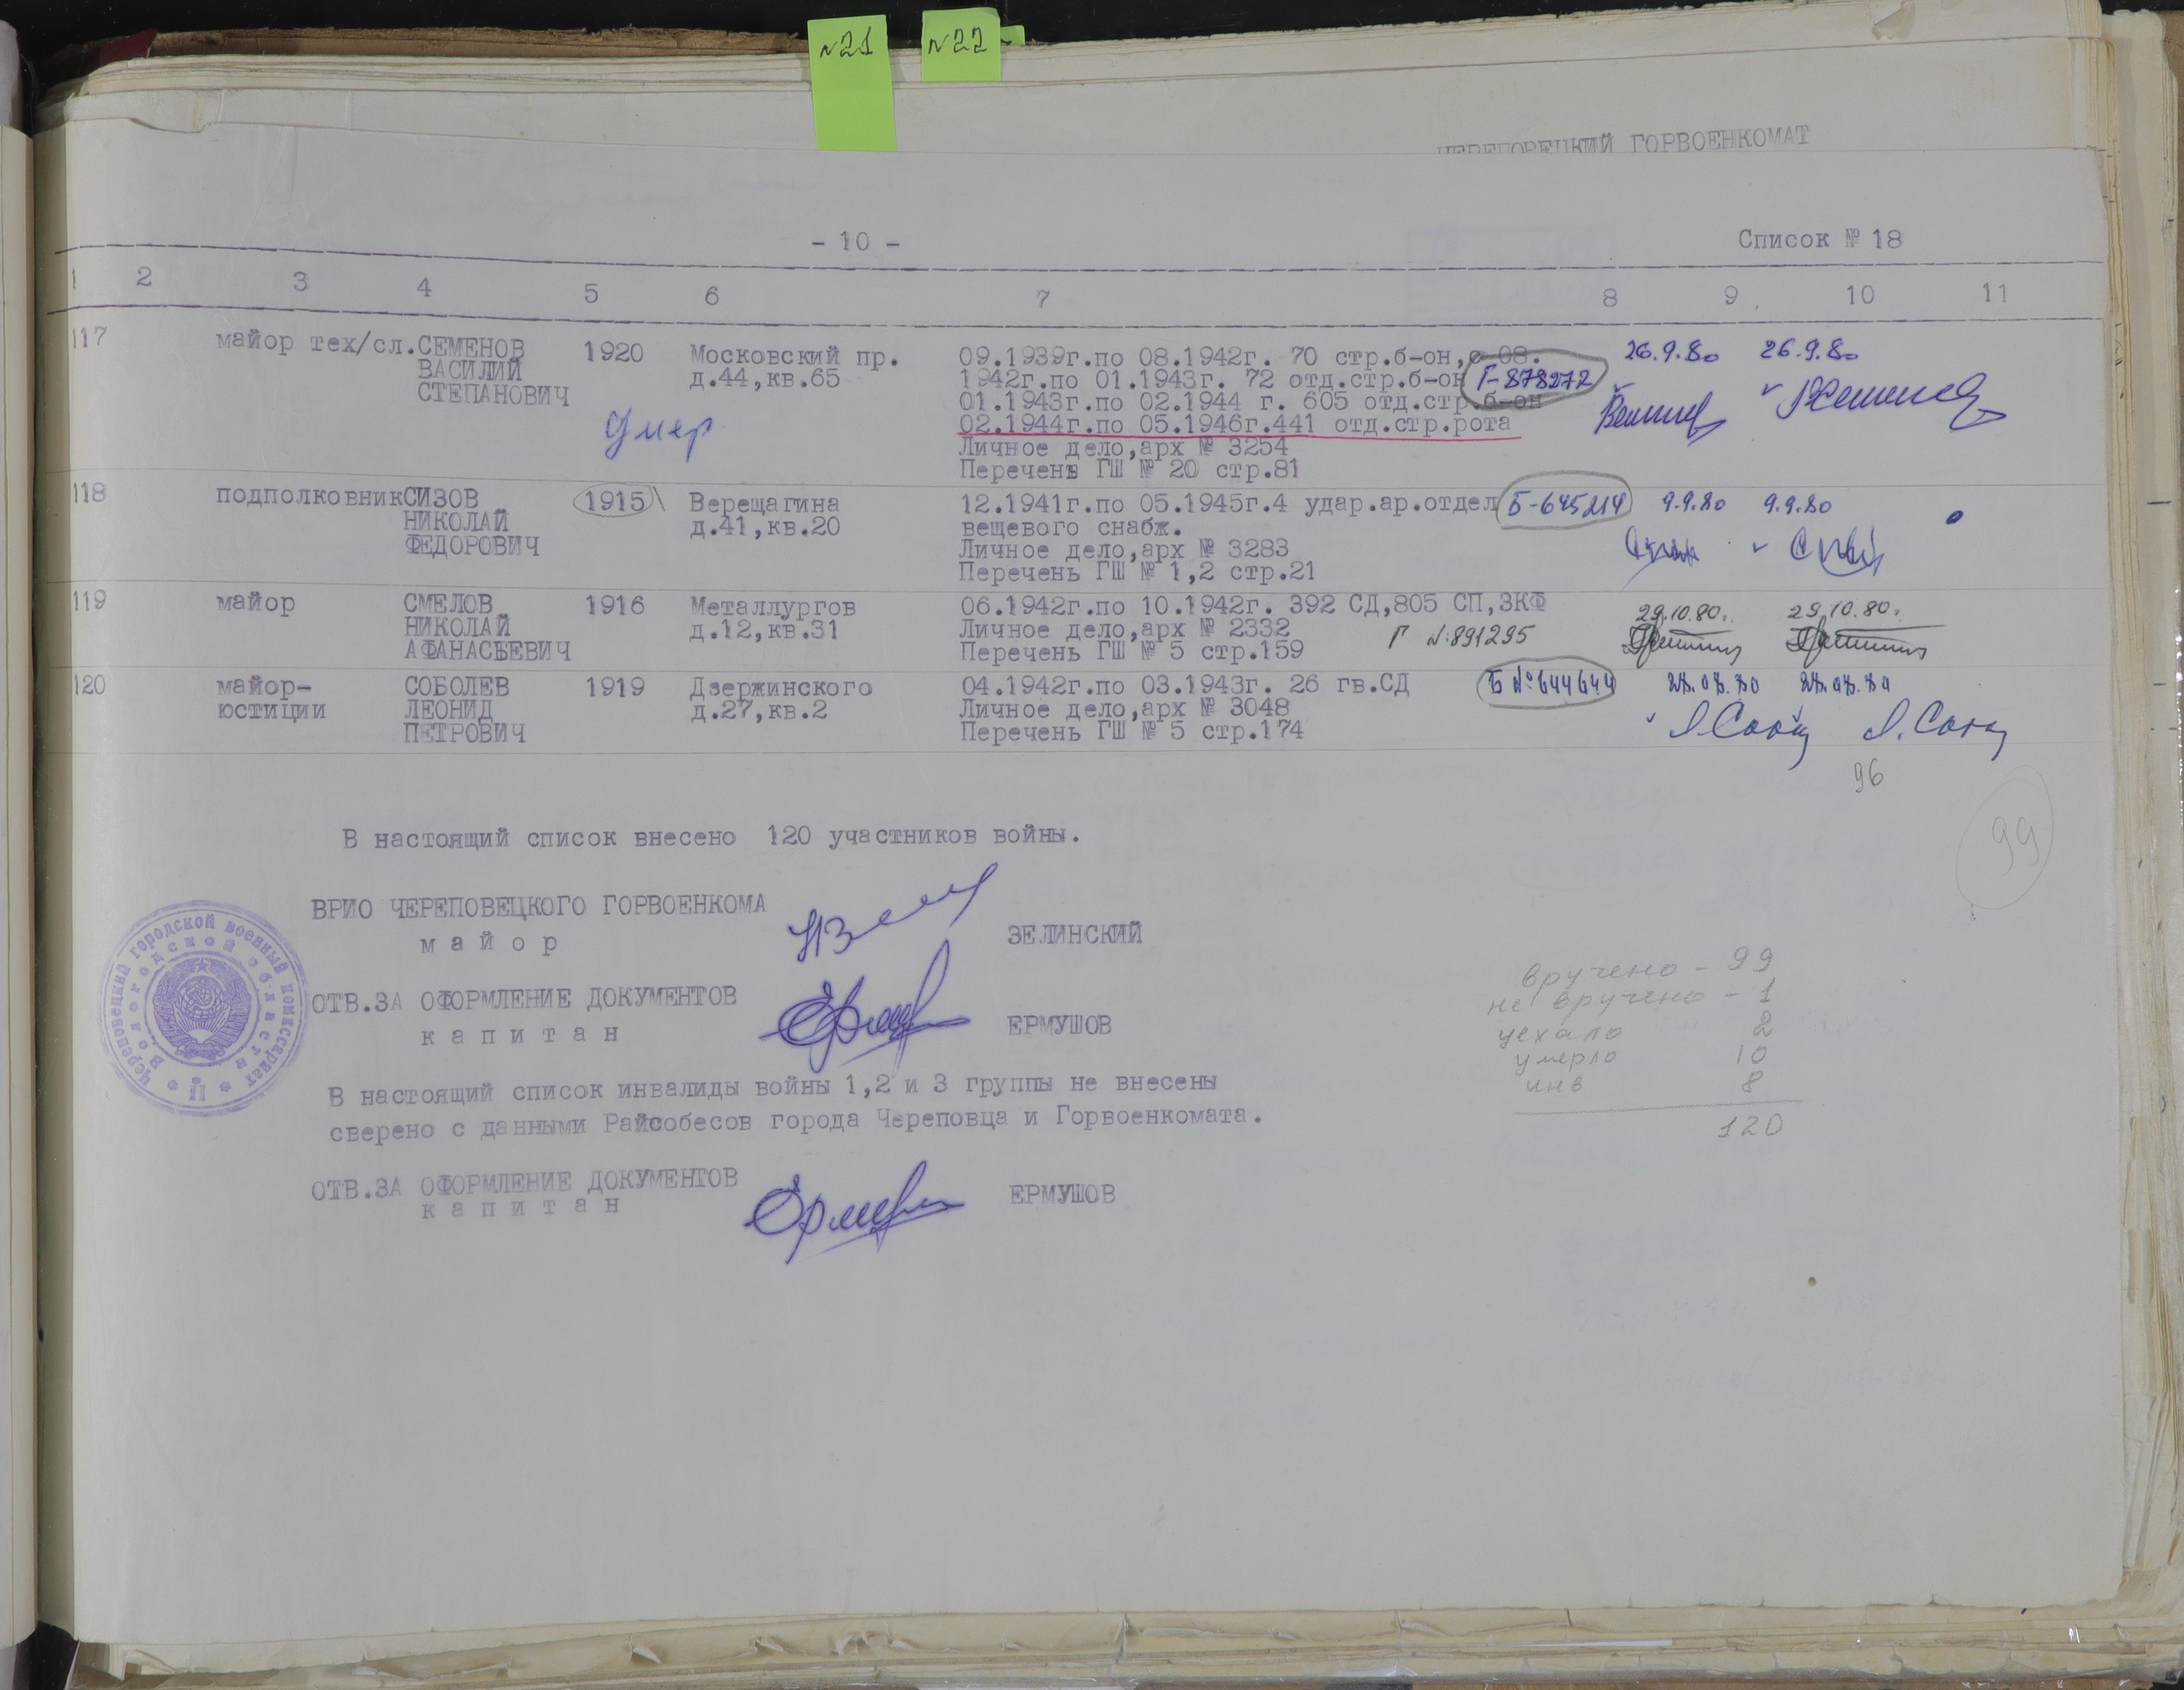 №21 №22
ЧЕРЕПОВЕЦКИЙ ГОРВОЕНКОМАТ
- 10 - Список № 18
1 2 3 4 5 6 7 8 9 10 11
117 майор тех/сл. СЕМЕНОВ 1920 Московский пр. 09.1939г.по 08.1942г. 70 стр.б-он,с 08. 26.9.80 26.9.80
ВАСИЛИЙ д.44,кв.65 1942г.по 01.1943г. 72 отд.стр.б-он Г-878272
СТЕПАНОВИЧ 01.1943г.по 02.1944 г. 605 отд.стр.б-он
Умер 02.1944г.по 05.1946г.441 отд.стр.рота
Личное дело,арх № 3254
Перечень ГШ № 20 стр.81
118 подполковник СИЗОВ 1915 Верещагина 12.1941г.по 05.1945г.4 удар.ар.отдел Б-645214 9.9.80 9.9.80
НИКОЛАЙ д.41,кв.20 вещевого снабж.
ФЕДОРОВИЧ Личное дело,арх № 3283
Перечень ГШ № 1,2 стр.21
119 майор СМЕЛОВ 1916 Металлургов 06.1942г.по 10.1942г. 392 СД,805 СП,ЗКФ 29.10.80. 29.10.80.
НИКОЛАЙ д.12,кв.31 Личное дело,арх № 2332 Г №:891295
АФАНАСЬЕВИЧ Перечень ГШ № 5 стр.159
120 майор- СОБОЛЕВ 1919 Дзержинского 04.1942г.по 03.1943г. 26 гв.СД Б №644644 28.08.80 28.08.80
юстиции ЛЕОНИД д.27,кв.2 Личное дело,арх № 3048
ПЕТРОВИЧ Перечень ГШ № 5 стр.174
96
99
В настоящий список внесено 120 участников войны.
ВРИО ЧЕРЕПОВЕЦКОГО ГОРВОЕНКОМА
м а й о р ЗЕЛИНСКИЙ
ОТВ.ЗА ОФОРМЛЕНИЕ ДОКУМЕНТОВ
к а п и т а н ЕРМУШОВ
В настоящий список инвалиды войны 1,2 и 3 группы не внесены
сверено с данными Райсобесов города Череповца и Горвоенкомата.
ОТВ.ЗА ОФОРМЛЕНИЕ ДОКУМЕНТОВ
к а п и т а н ЕРМУШОВ
вручено - 99
не вручено - 1
уехало 2
умерло 10
инв 8
120
Череповецкий городской военный комиссариат
Вологодской области